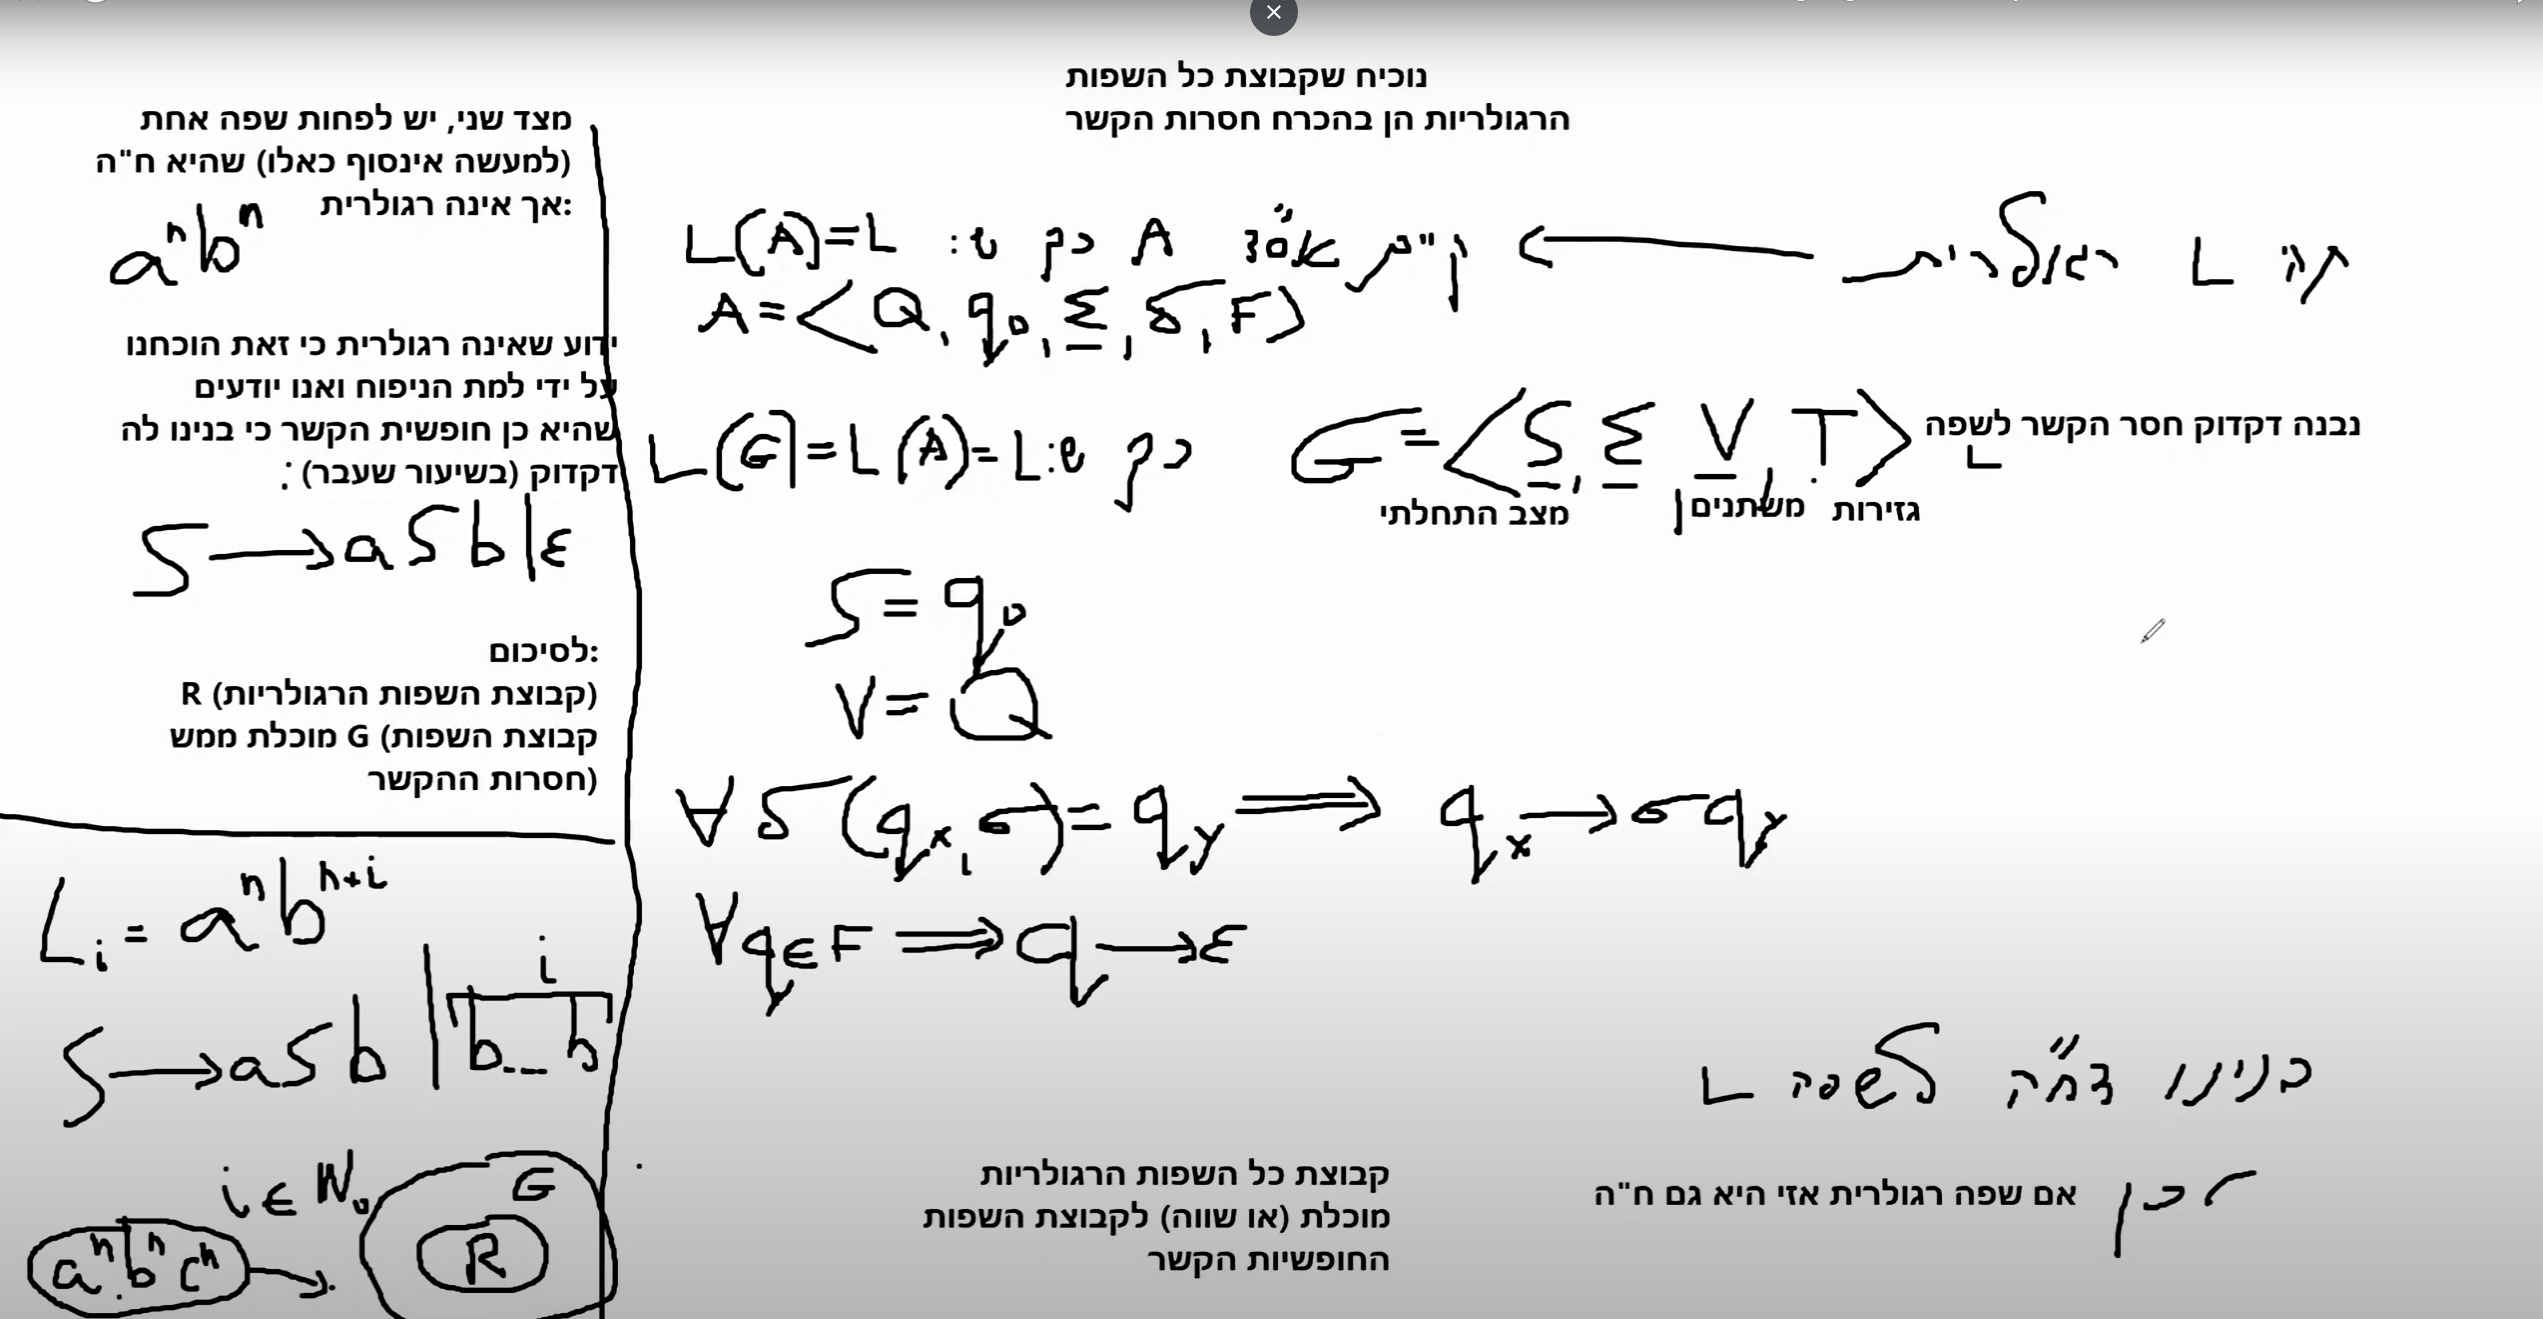 נוכיח שקבוצת כל השפות
הרגולריות הן בהכרח חסרות הקשר
תהי L רגולרית ⟵ קיים אס"ד A כך ש: L(A)=L
A=<Q, q₀, Σ, δ, F>
נבנה דקדוק חסר הקשר לשפה
L
G=<S, Σ, V, T> כך ש: L(G)=L(A)=L
מצב התחלתי
משתנים
גזירות
S=q₀
V=Q
∀ δ(qₓ, σ)=q_y ⟹ qₓ→σq_y
∀q∈F ⟹ q→ε
בנינו דח"ה לשפה L
לכן אם שפה רגולרית אזי היא גם ח"ה
קבוצת כל השפות הרגולריות
מוכלת (או שווה) לקבוצת השפות
החופשיות הקשר
מצד שני, יש לפחות שפה אחת
(למעשה אינסוף כאלו) שהיא ח"ה
אך אינה רגולרית:
aⁿbⁿ
ידוע שאינה רגולרית כי זאת הוכחנו
על ידי למת הניפוח ואנו יודעים
שהיא כן חופשית הקשר כי בנינו לה
דקדוק (בשיעור שעבר):
S→aSb|ε
לסיכום:
R (קבוצת השפות הרגולריות)
מוכלת ממש G (קבוצת השפות
חסרות ההקשר)
Lᵢ = aⁿbⁿ⁺ⁱ
i
S→aSb|b...b
i∈ℕ₀
G
R
aⁿbⁿcⁿ→